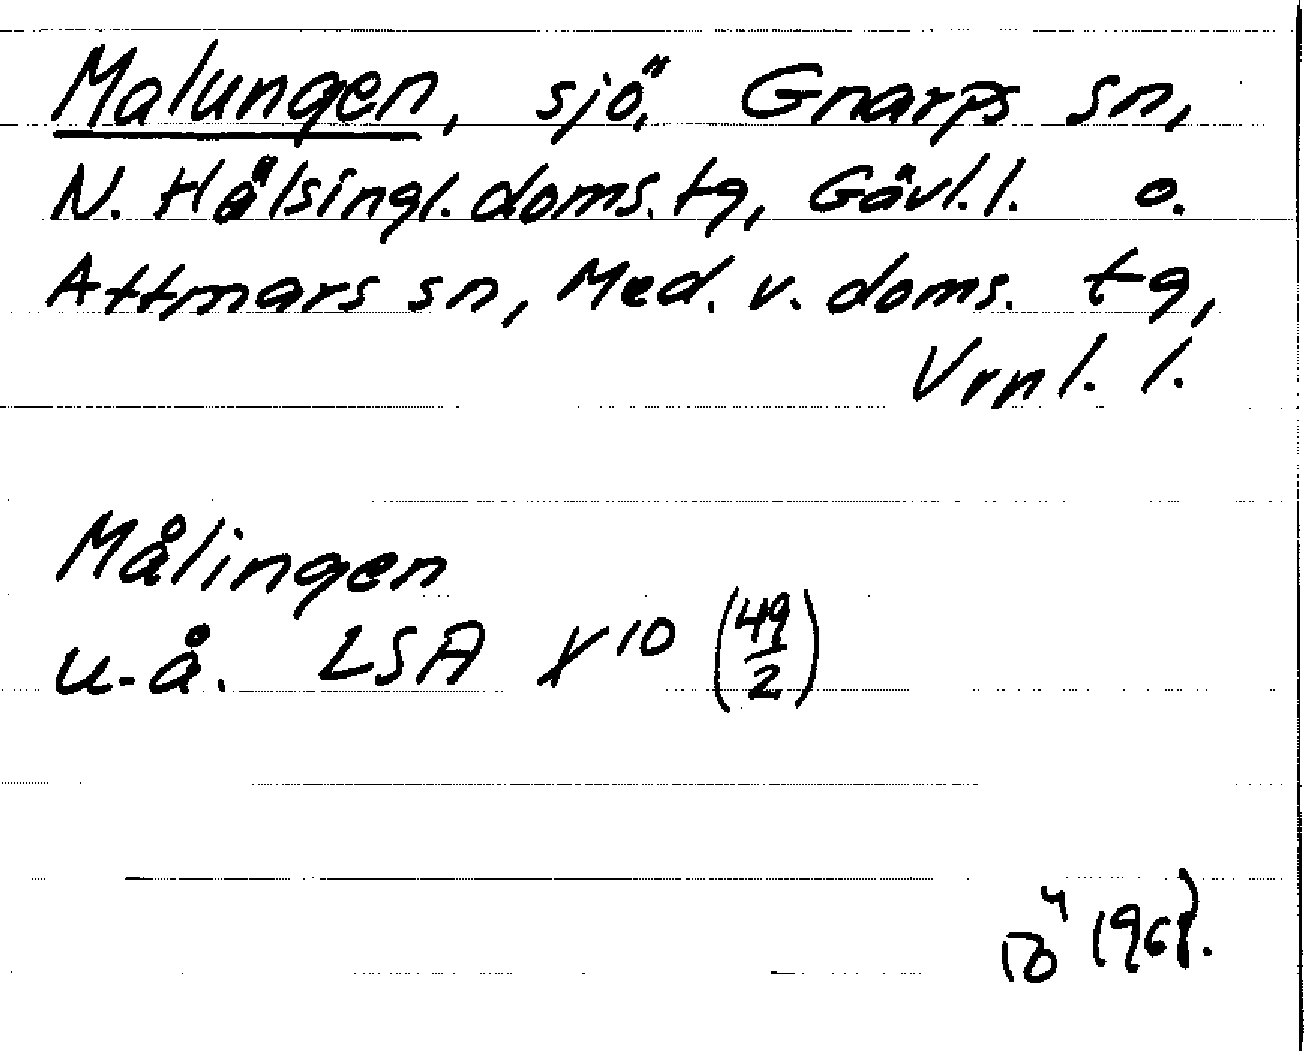 Malungen, sjö. Gnarps sn,
N. Hälsingl. doms. tg, Gävl. l. o.
Attmars sn, Med. v. doms. tg,
Vrnl. l.
Målingen
u.å. LSA X 10 (49/2)